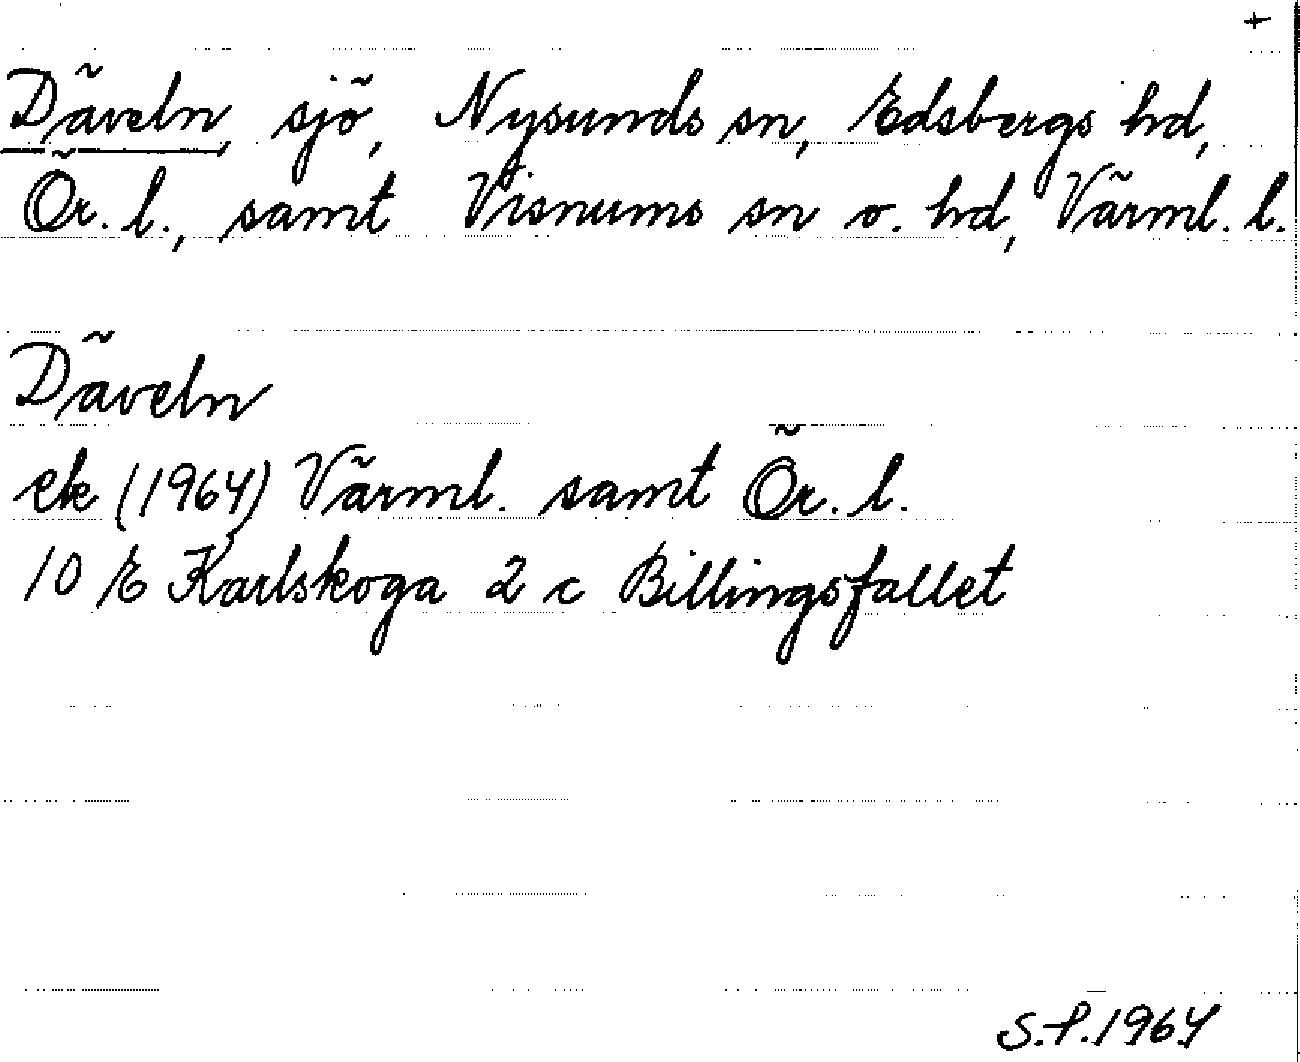 +
Däveln, sjö, Nysunds sn, Edsbergs hd,
Ör. l., samt Visnums sn o. hd, Värml. l.
Däveln
ek (1964) Värml. samt Ör. l.
10 E Karlskoga 2 c Billingsfallet
S.P. 1964